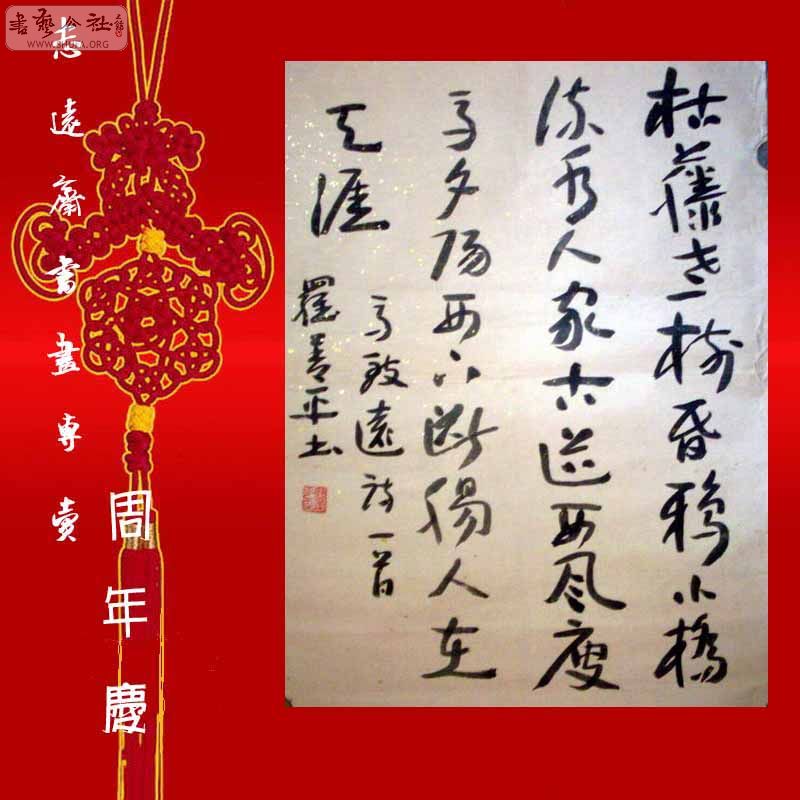 書藝公社
WWW.SHUFA.ORG
志遠齋書畫專賣
周年慶
枯藤老樹昏鴉小橋
流水人家古道西風瘦
馬夕陽西下斷腸人在
天涯
馬致遠詩一首
平书